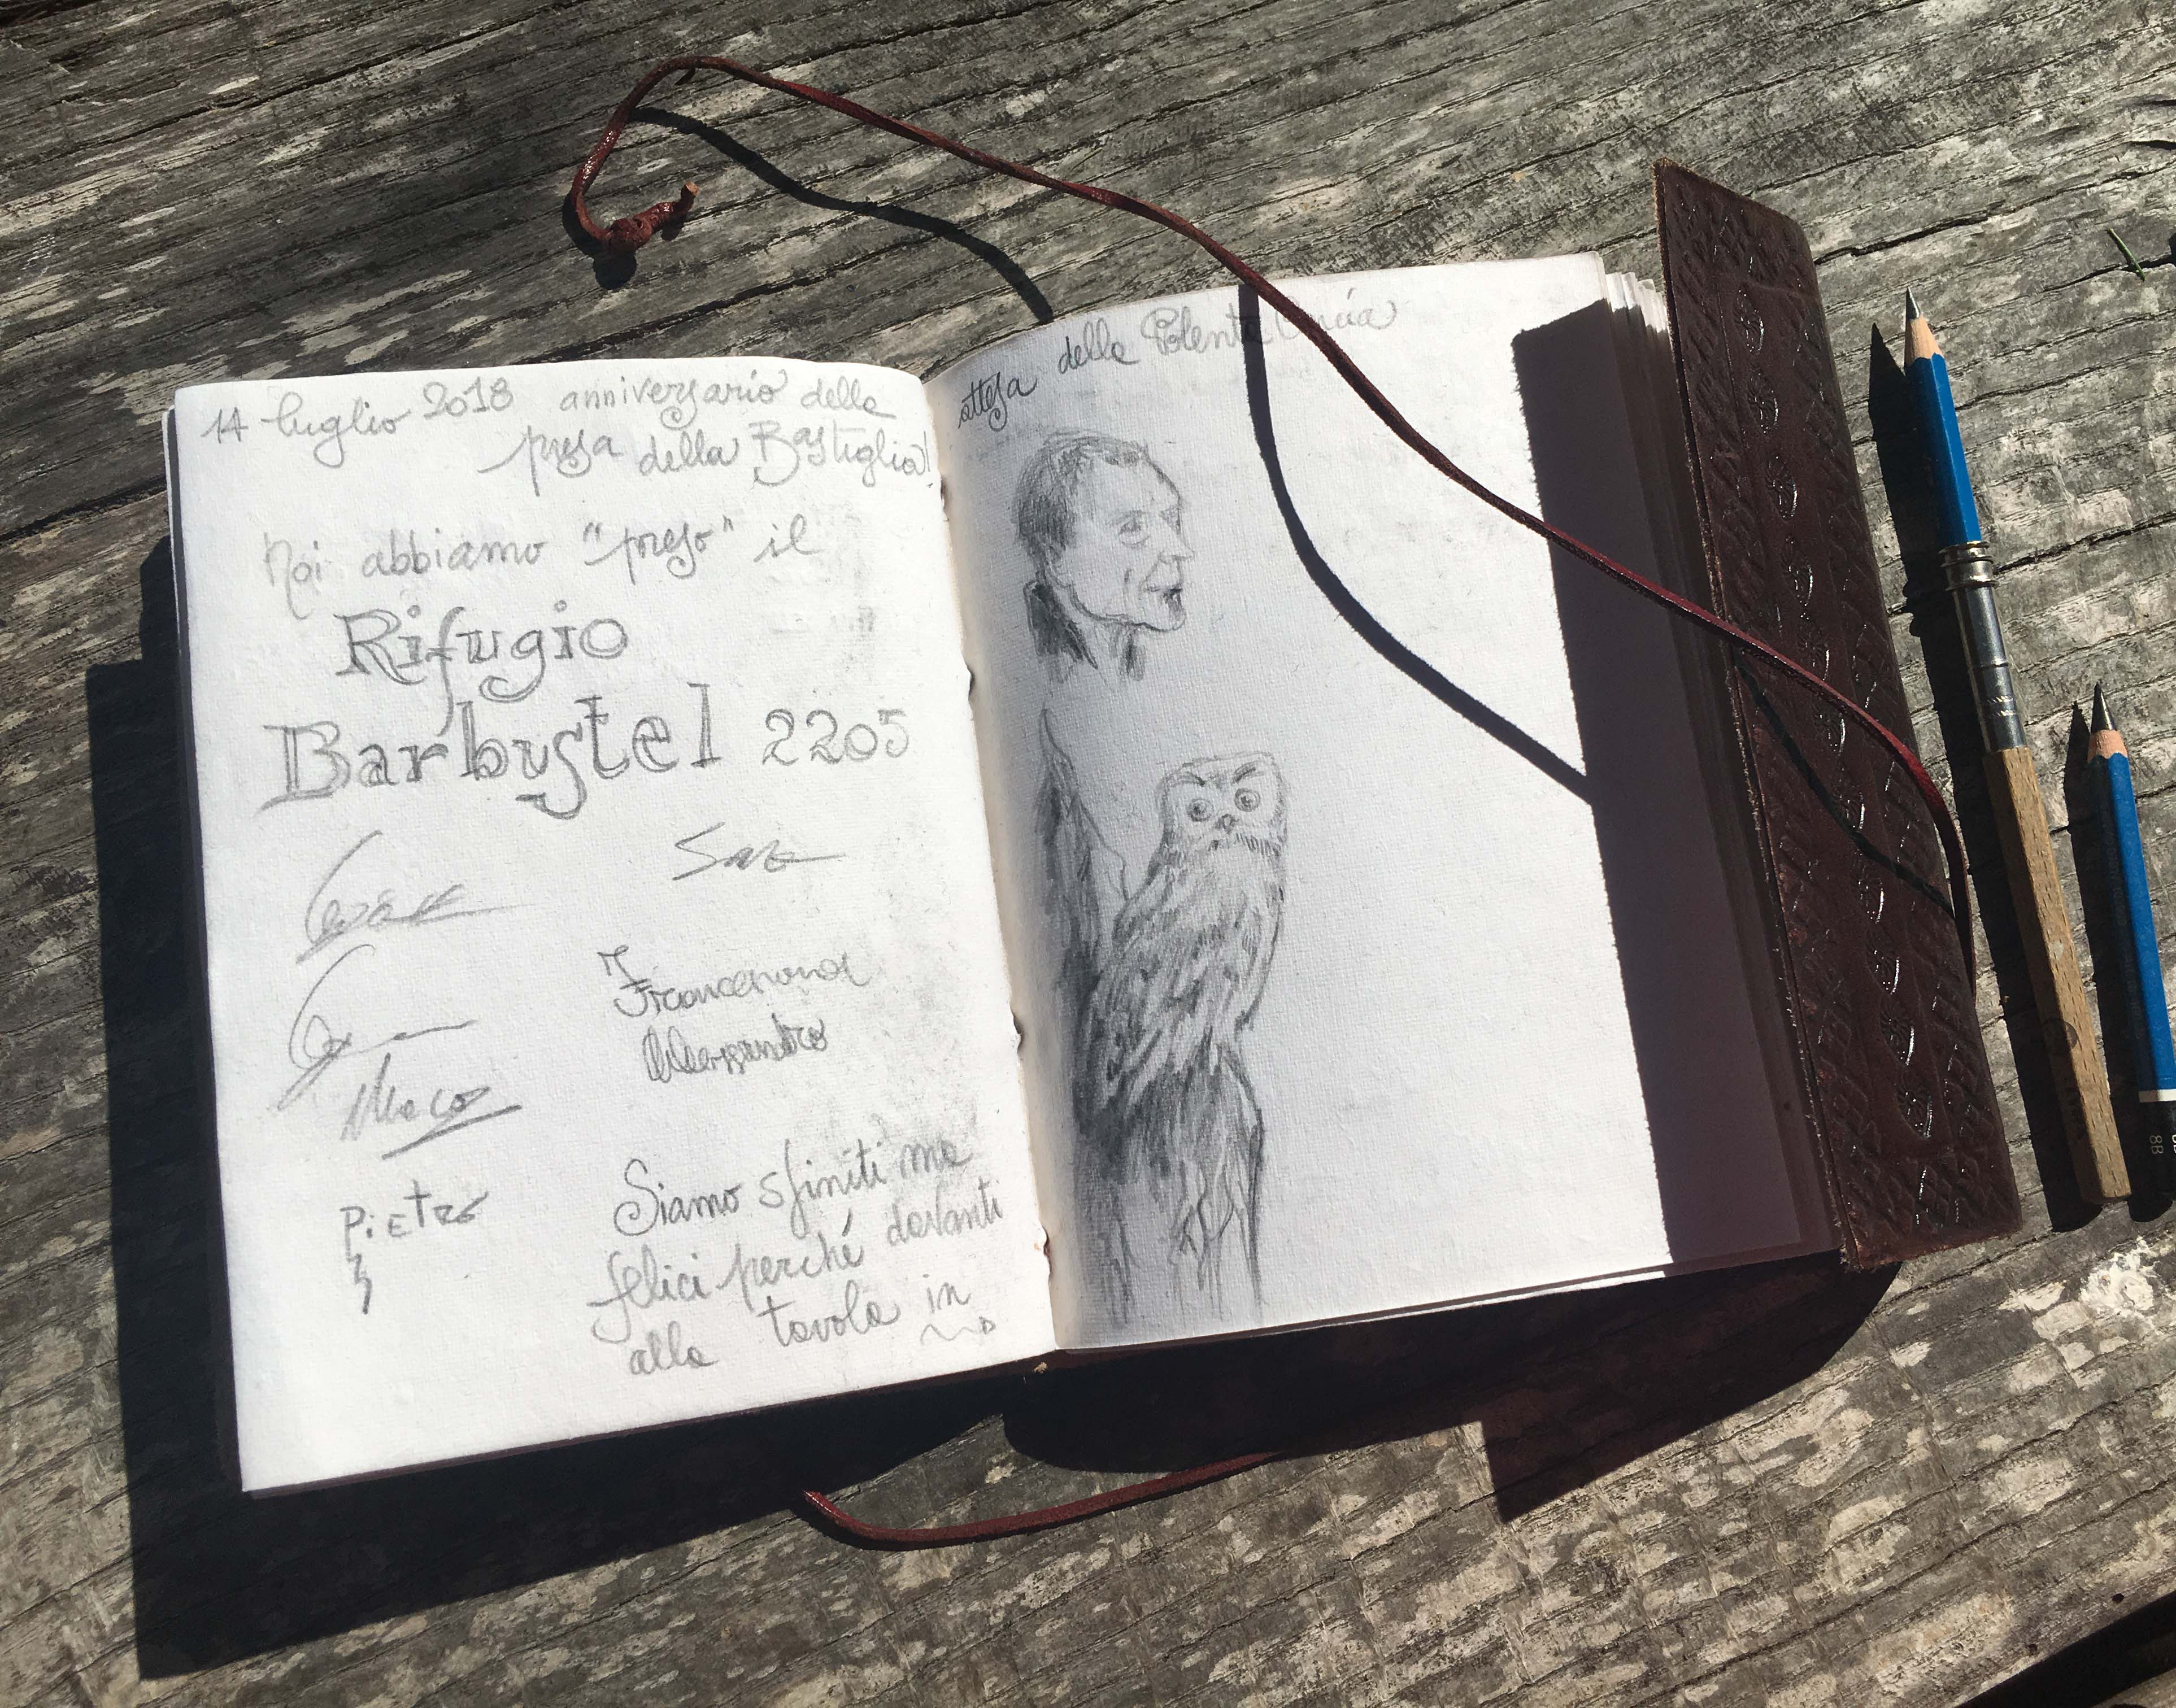 14 luglio 2018 anniversario della
presa della Bastiglia!
Noi abbiamo "preso" il
Rifugio
Barbustel 2205
Francesconi
Alessandro
Marco
PiEtro
Siamo sfiniti ma
felici perché davanti
alla tavola in
attesa della Polenta Uncia
8B